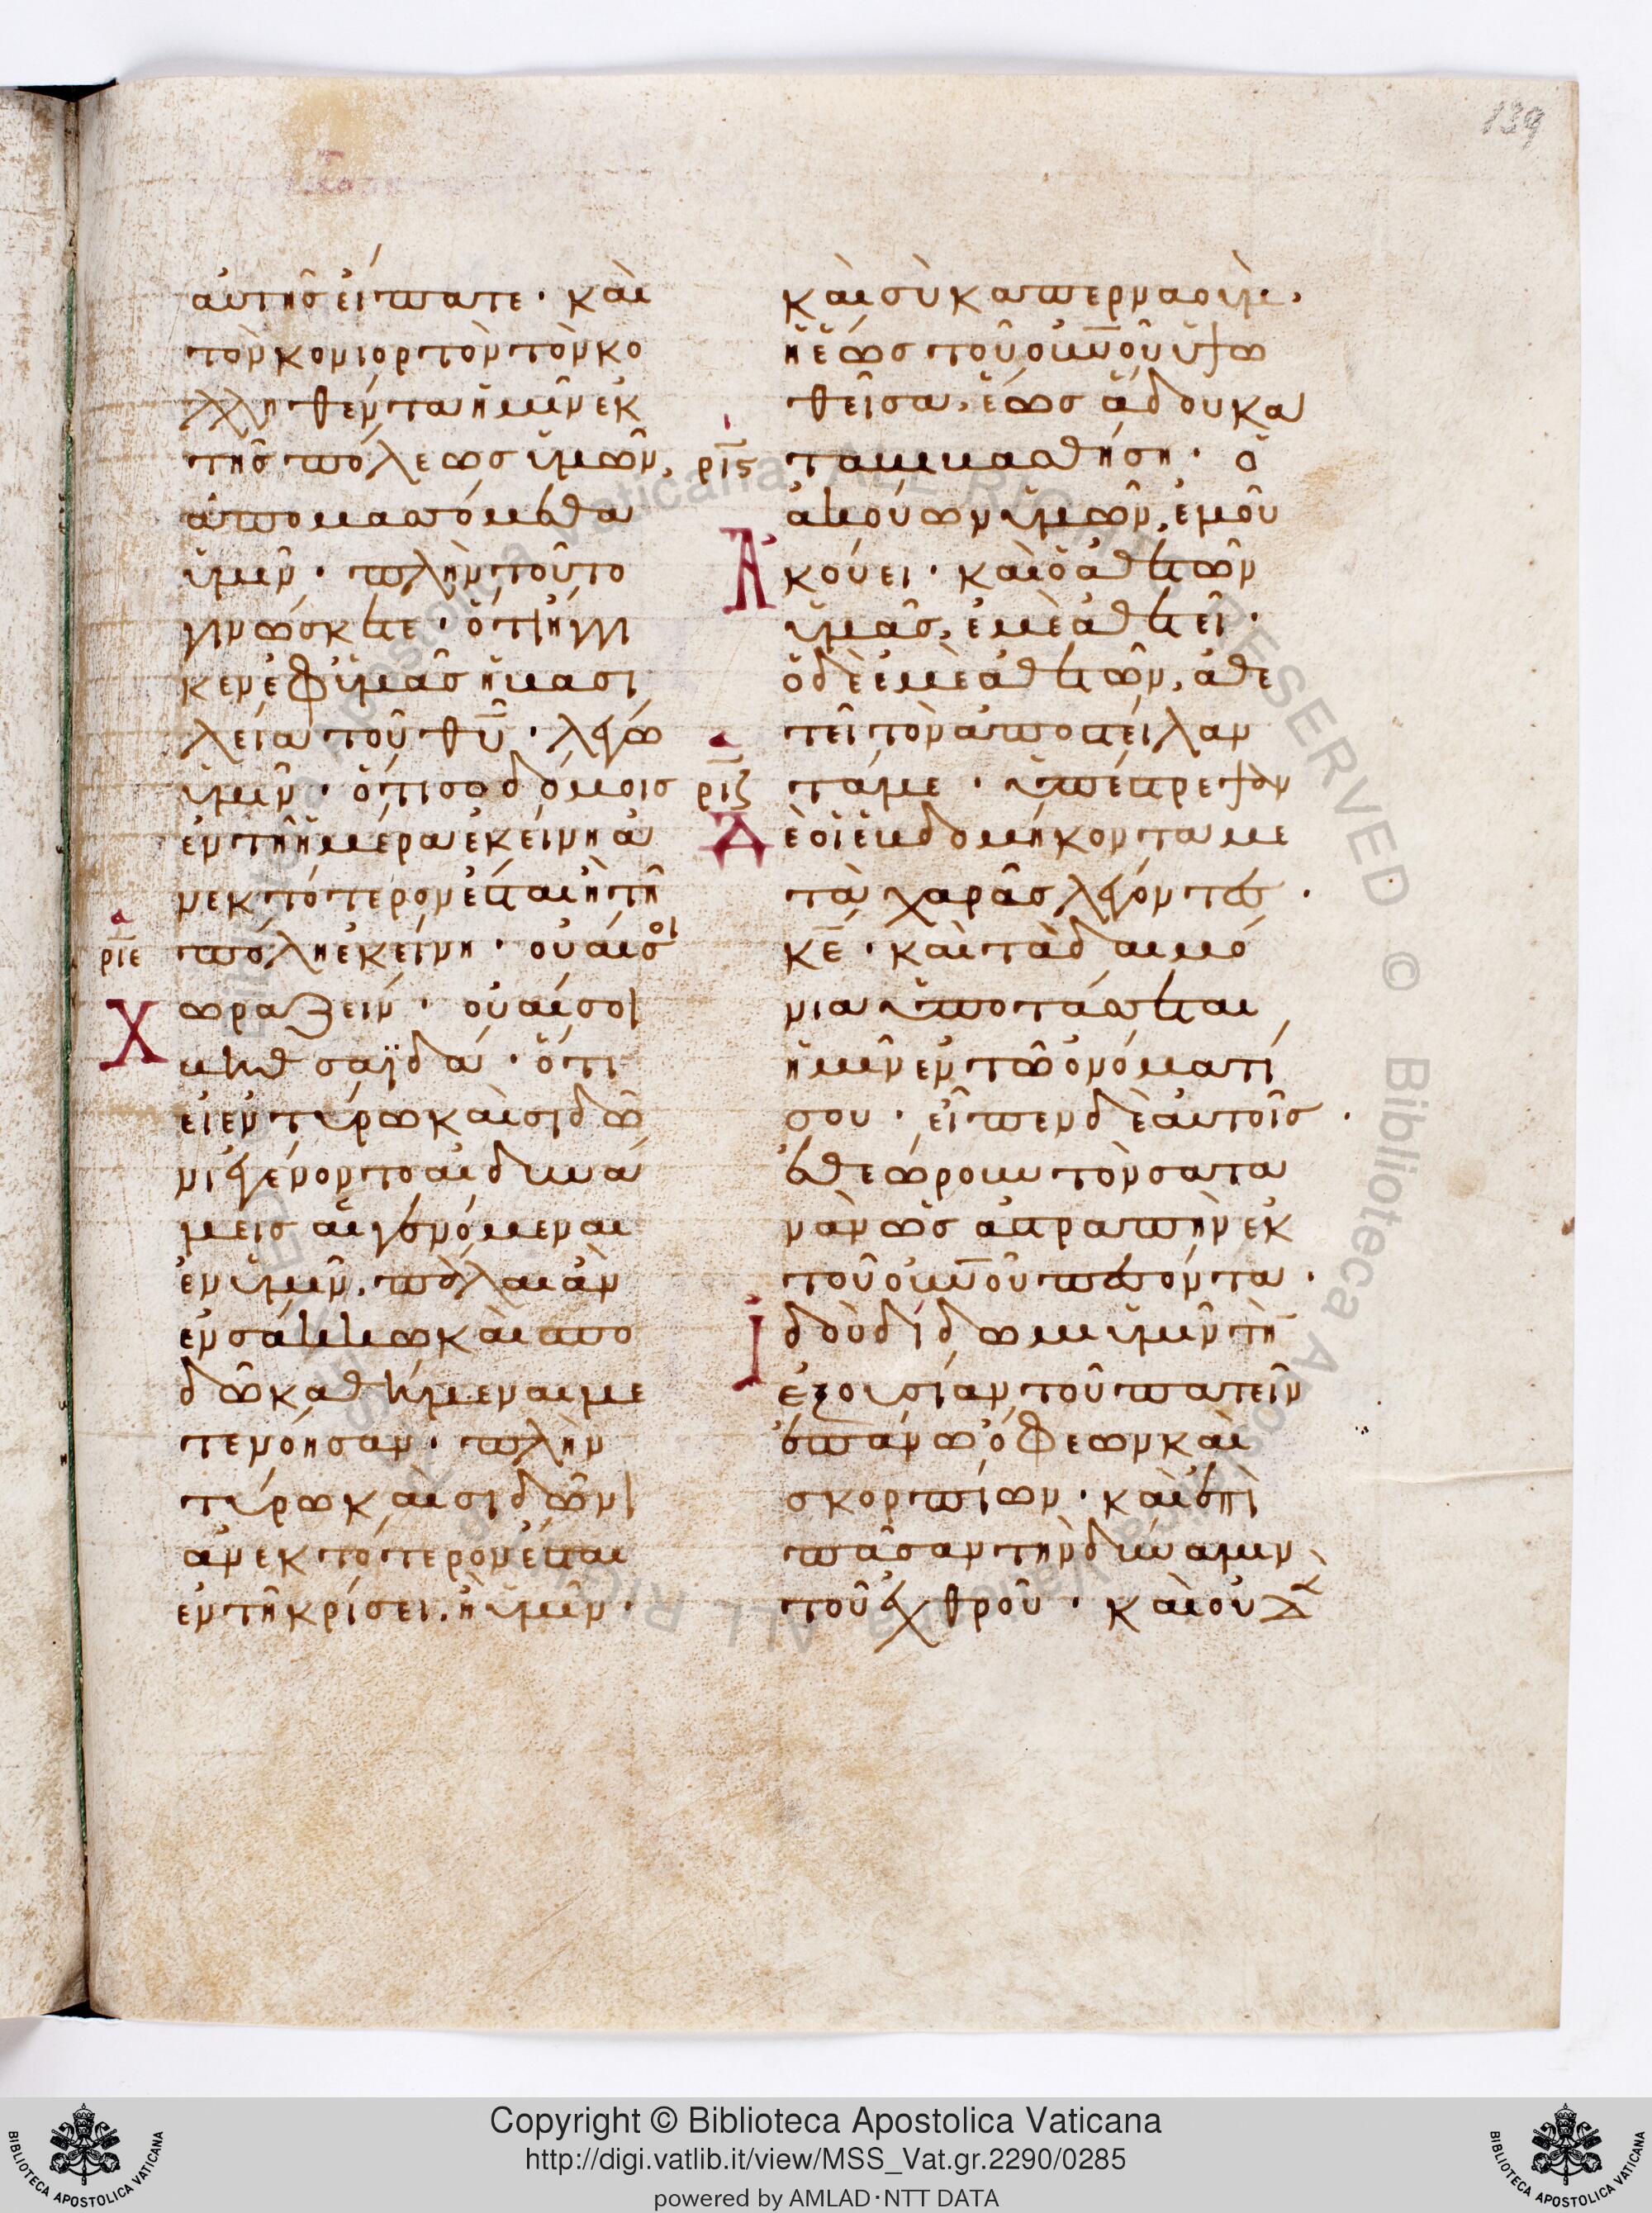 139
αὐτῆς εἴπατε · καὶ
τὸν κονιορτὸν τὸν κο
λληθέντα ἡμῖν ἐκ
τῆς πόλεως ὑμῶν,
ἀπομασσόμεθα
ὑμῖν · πλὴν τοῦτο
γινώσκετε · ὅτι ἤγγι
κεν ἐφ ὑμᾶς ἡ βασι
λεία τοῦ θυ · λέγω
ὑμῖν · ὅτι σοδόμοις
ἐν τῇ ἡμέρα ἐκείνη ἀ
νεκτότερον ἔσται ἢ τῆ
ριε πόλη ἐκείνη · οὐαί σοι
Χωραζείν · οὐαί σοι
βηθσαϊδά · ὅτι
εἰ ἐν τύρω καὶ σιδῶ
νι ἐγένοντο αἱ δυνά
μεις αἱ γενόμεναι
ἐν ὑμῖν, πάλαι ἂν
ἐν σάκκω καὶ σπο
δῶ καθήμεναι με
τενόησαν · πλὴν
τύρω καὶ σιδῶνι
ἀνεκτότερον ἔσται
ἐν τῆ κρίσει, ἢ ὑμῖν ·
καὶ σὺ καπερναούμ,
ἡ ἕως τοῦ οὐνοῦ ὑψω
θεῖσα, ἕως ἅδου κα
ρις ταβιβασθήση · ὁ
ἀκούων ὑμῶν, ἐμοῦ
Ἀκούει · καὶ ὁ ἀθετῶν
ὑμᾶς, ἐμὲ ἀθετεῖ ·
ὁ δὲ ἐμὲ ἀθετῶν, ἀθε
τεῖ τὸν ἀποστείλαν
ριζ τά με · ὑπέστρεψαν
Δὲ οἱ ἑβδομήκοντα με
τὰ χαρᾶς λέγοντες ·
κε · καὶ τὰ δαιμό
νια ὑποτάσσεται
ἡμῖν ἐν τῶ ὀνόματί
σου · εἶπεν δὲ αὐτοῖς ·
ἐθεώρουν τὸν σατα
νᾶν ὡς ἀστραπὴν ἐκ
τοῦ οὐνοῦ πεσόντα ·
Ἰδοὺ δίδωμι ὑμῖν τὴ
ἐξουσίαν τοῦ πατεῖν
ἐπάνω ὄφεων καὶ
σκορπίων · καὶ ἐπὶ
πᾶσαν τὴν δύναμιν
τοῦ ἐχθροῦ · καὶ οὐδὲ
Copyright © Biblioteca Apostolica Vaticana
http://digi.vatlib.it/view/MSS_Vat.gr.2290/0285
powered by AMLAD·NTT DATA
BIBLIOTECA APOSTOLICA VATICANA
BIBLIOTECA APOSTOLICA VATICANA